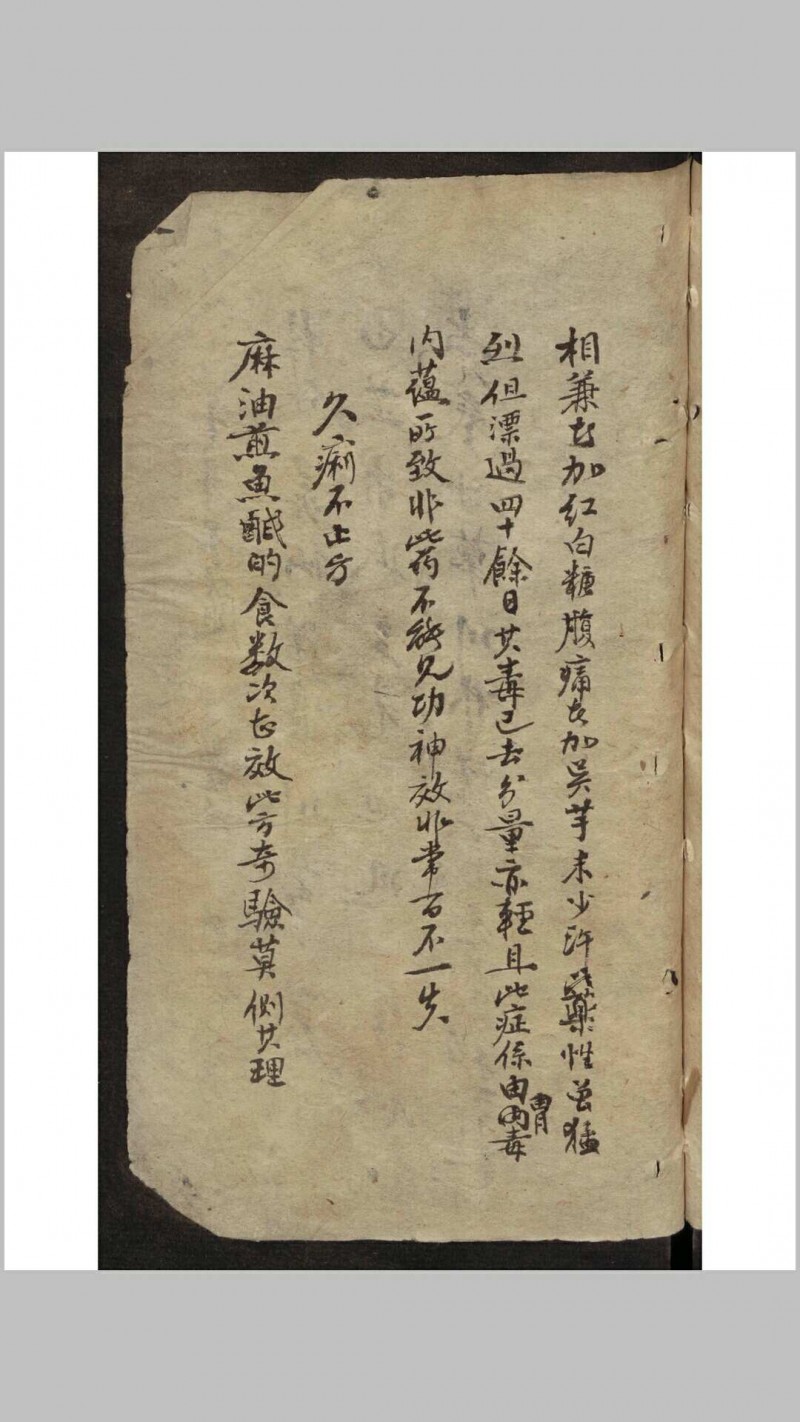 相兼者加红白糖腹痛者加吴芋末少許此藥性虽猛
烈但漂過四十餘日其毒已去分量亦輕且此症係由胃内毒
内蕴所致非此药不能見功神效非常百不一失
久痢不止方
麻油煎魚鹹的食数次甚效此方奇驗莫側其理